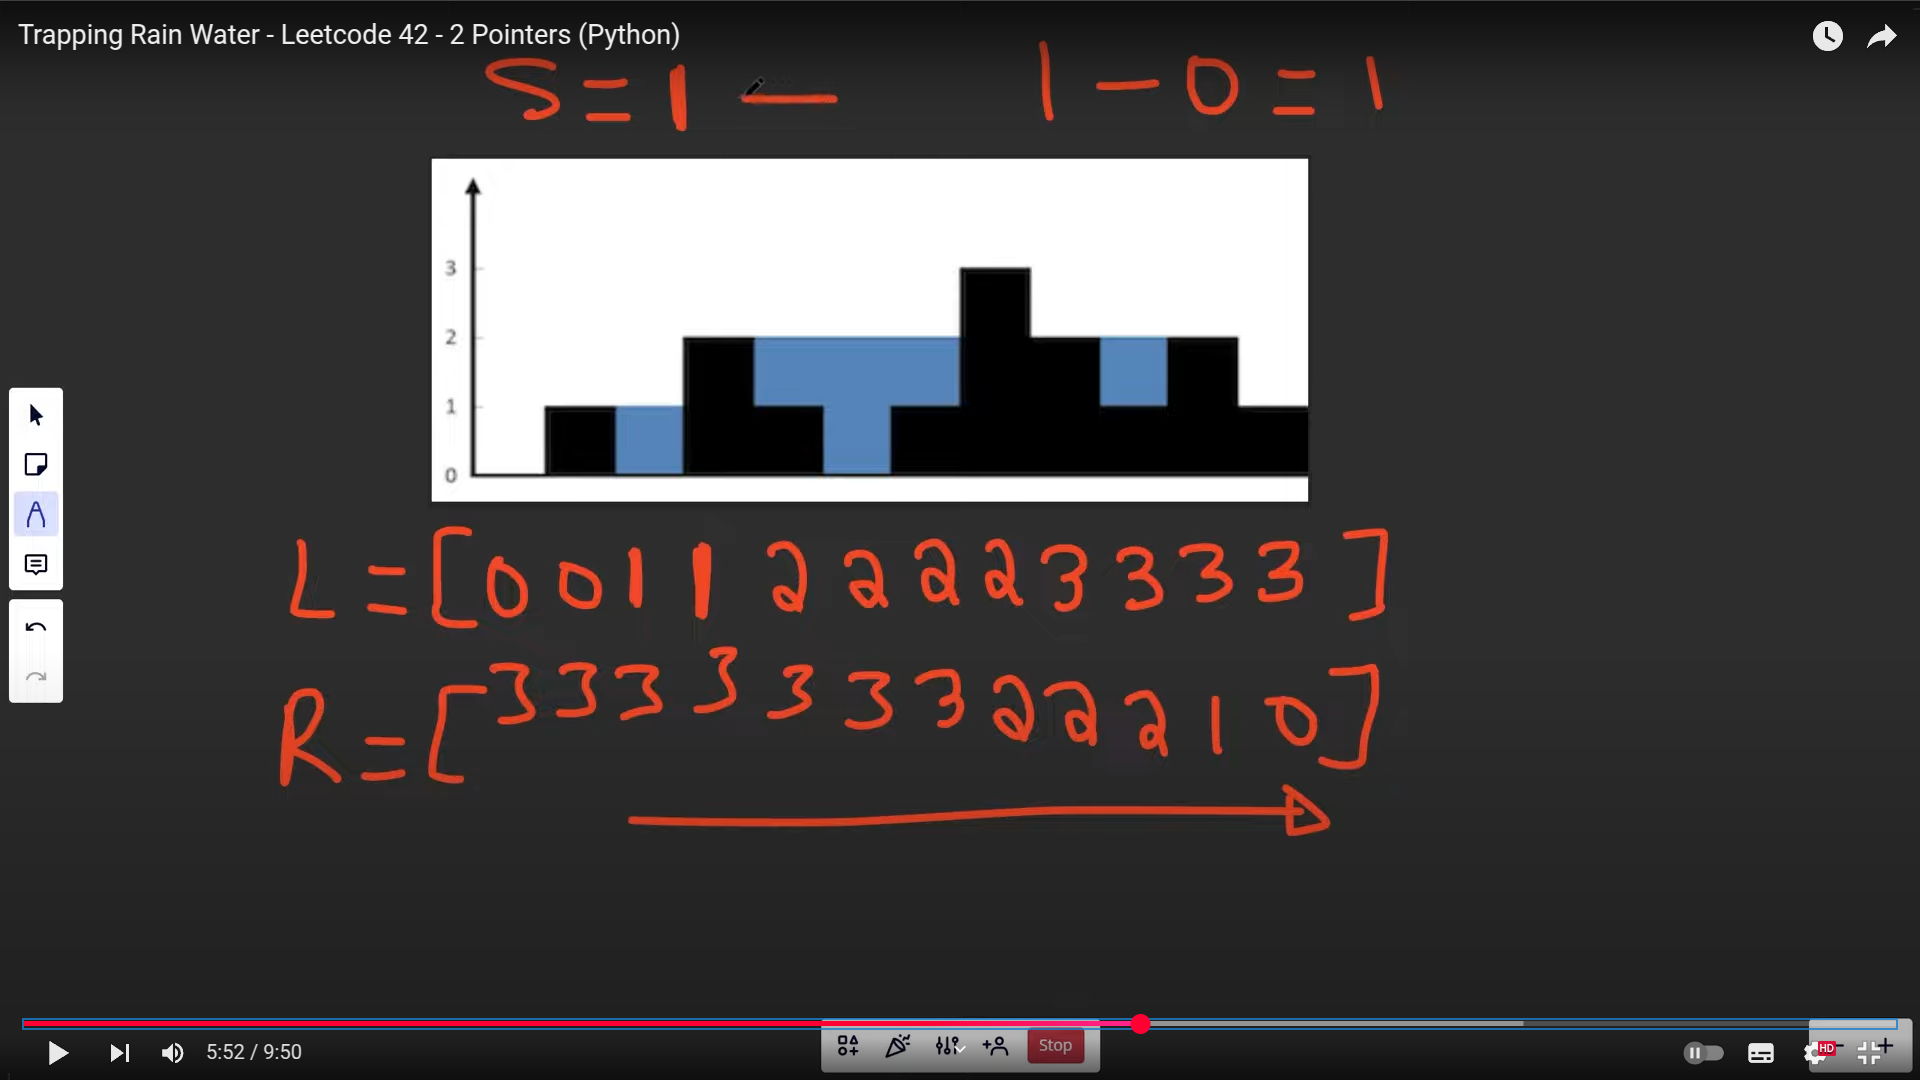 Trapping Rain Water - Leetcode 42 - 2 Pointers (Python)
S = 1 — 1 - 0 = 1
3
2
1
0
L = [0 0 1 1 2 2 2 2 3 3 3 3]
R = [3 3 3 3 3 3 3 2 2 2 1 0]
5:52 / 9:50
Stop
HD